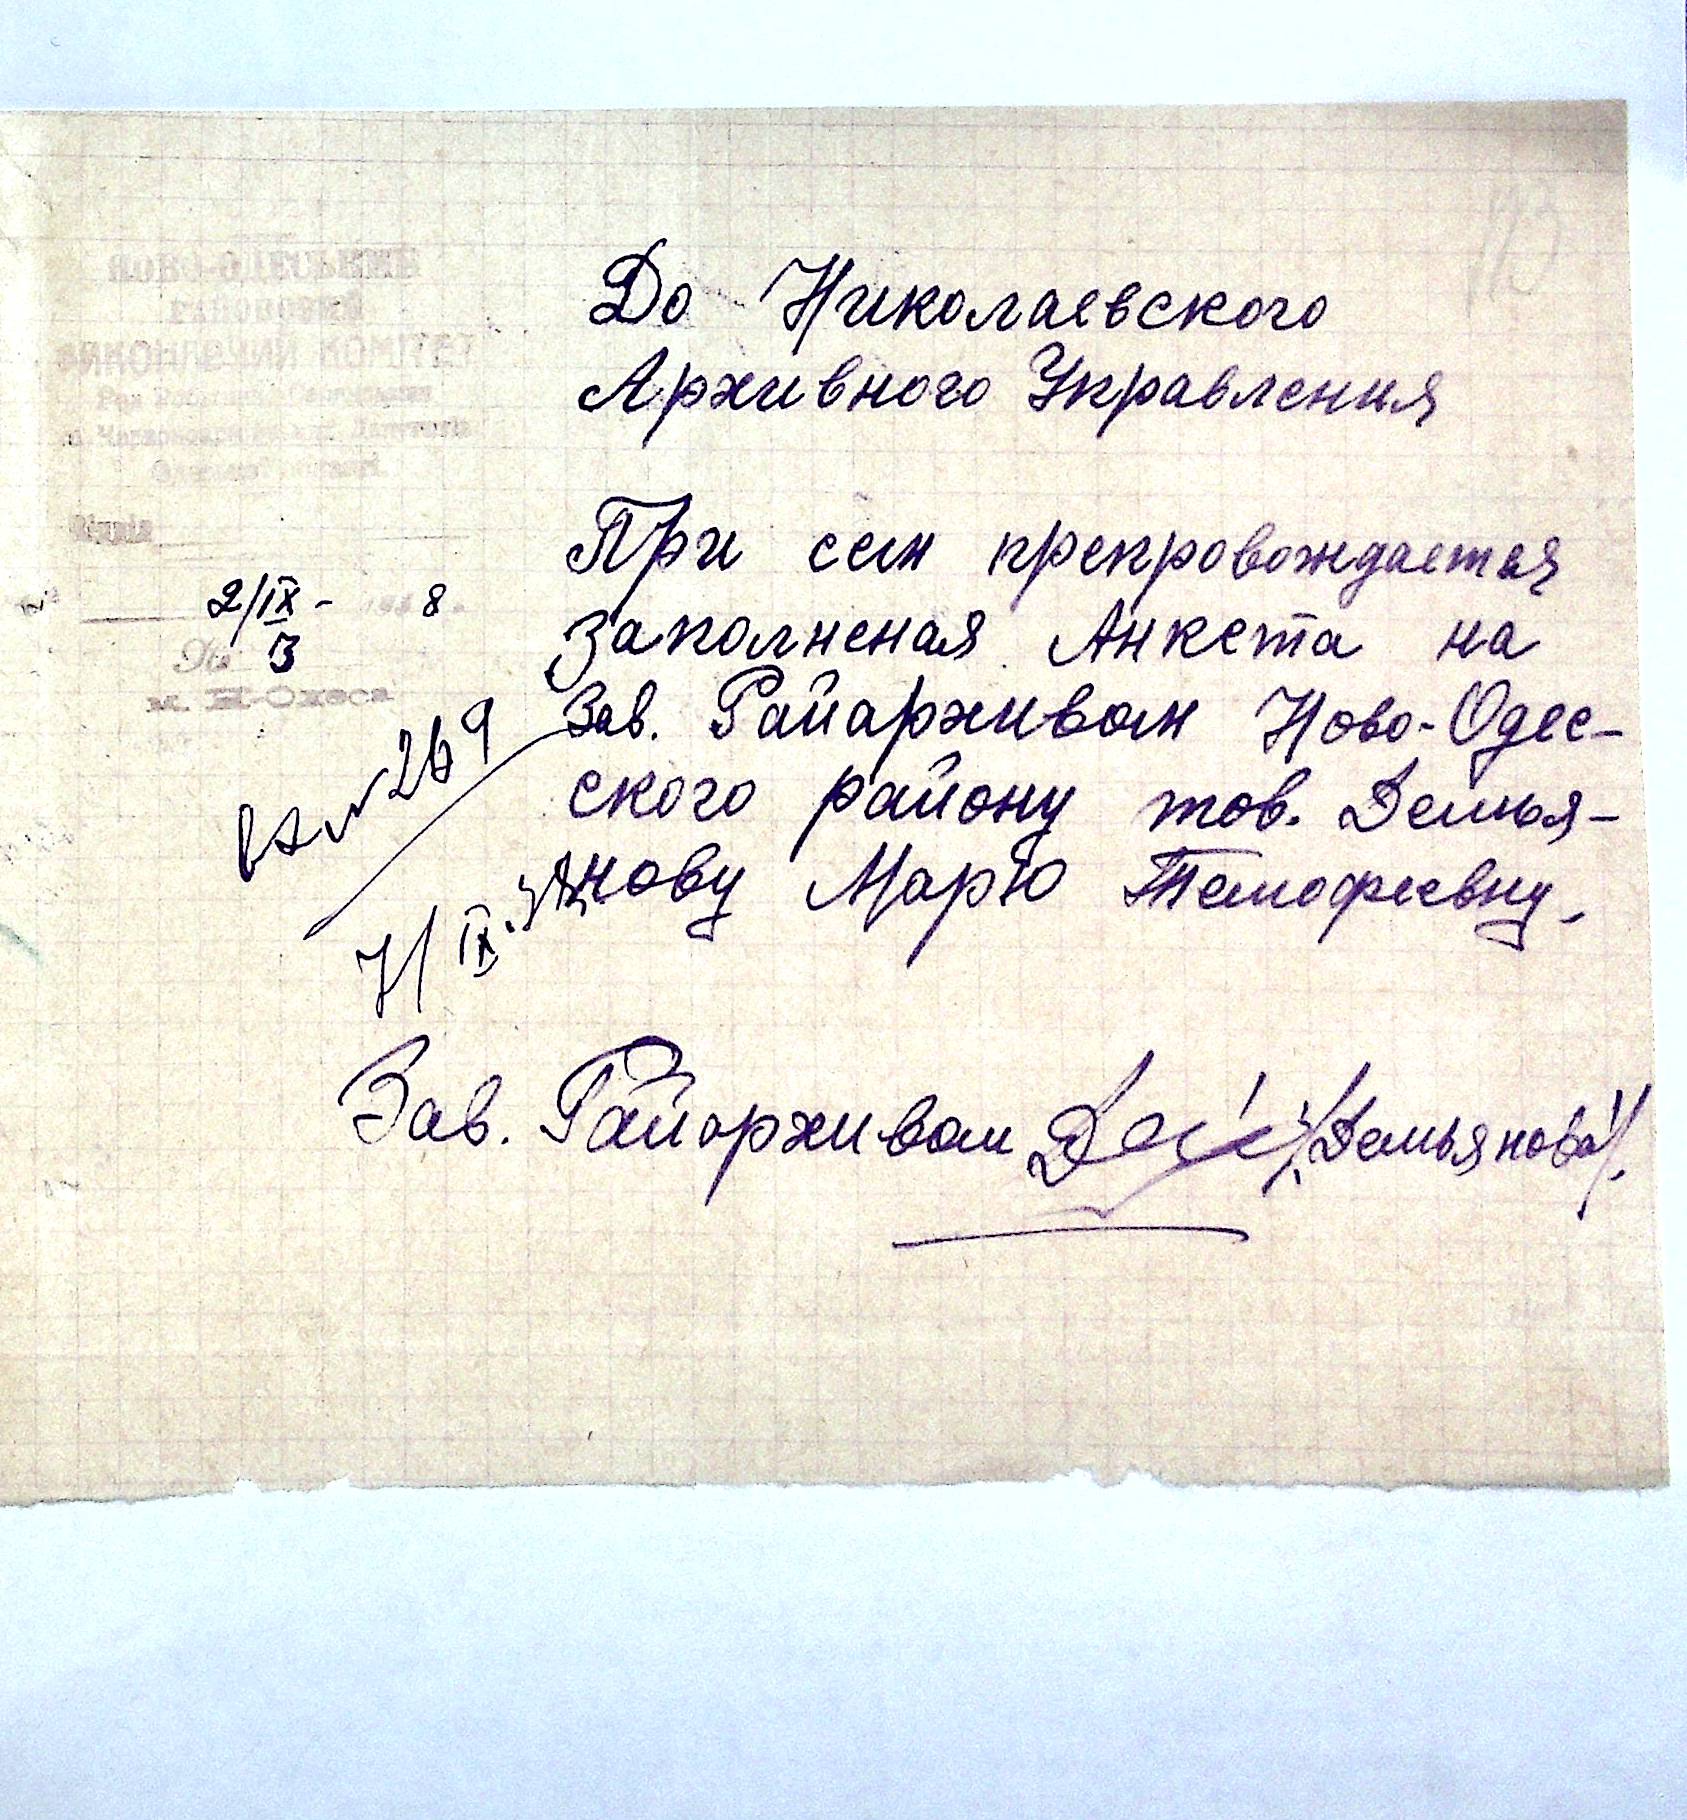 НОВО-ОДЕСЬКИЙ
РАЙОНОВИЙ
ВИКОНАВЧИЙ КОМІТЕТ
2/IX- 193 8
№ 3
м. Н-Одеса
вх № 269
7/IX. 38
До Николаевского
Архивного Управления
При сем препровождается
Заполненая Анкета на
Зав. Райархивом Ново-Одес-
ского району тов. Демья-
нову Марю Темофеевну.
Зав. Райархивом /Демьянова/.